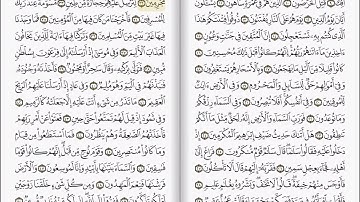 أُفِكَ قُتِلَ الْخَرَّاصُونَ الَّذِينَ هُمْ فِي غَمْرَةٍ سَاهُونَ يَسْأَلُونَ
أَيَّانَ يَوْمُ الدِّينِ يَوْمَ هُمْ عَلَى النَّارِ يُفْتَنُونَ ذُوقُوا فِتْنَتَكُمْ هَٰذَا
الَّذِي كُنتُم بِهِ تَسْتَعْجِلُونَ إِنَّ الْمُتَّقِينَ فِي جَنَّاتٍ وَعُيُونٍ
آخِذِينَ مَا آتَاهُمْ رَبُّهُمْ إِنَّهُمْ كَانُوا قَبْلَ ذَٰلِكَ مُحْسِنِينَ
كَانُوا قَلِيلًا مِّنَ اللَّيْلِ مَا يَهْجَعُونَ وَبِالْأَسْحَارِ هُمْ يَسْتَغْفِرُونَ
وَفِي أَمْوَالِهِمْ حَقٌّ لِّلسَّائِلِ وَالْمَحْرُومِ وَفِي الْأَرْضِ آيَاتٌ
لِّلْمُوقِنِينَ وَفِي أَنفُسِكُمْ أَفَلَا تُبْصِرُونَ وَفِي السَّمَاءِ رِزْقُكُمْ
وَمَا تُوعَدُونَ فَوَرَبِّ السَّمَاءِ وَالْأَرْضِ إِنَّهُ لَحَقٌّ مِّثْلَ مَا أَنَّكُمْ
تَنطِقُونَ هَلْ أَتَاكَ حَدِيثُ ضَيْفِ إِبْرَاهِيمَ الْمُكْرَمِينَ
إِذْ دَخَلُوا عَلَيْهِ فَقَالُوا سَلَامًا قَالَ سَلَامٌ قَوْمٌ مُّنكَرُونَ فَرَاغَ إِلَىٰ
أَهْلِهِ فَجَاءَ بِعِجْلٍ سَمِينٍ فَقَرَّبَهُ إِلَيْهِمْ قَالَ أَلَا تَأْكُلُونَ
فَأَوْجَسَ مِنْهُمْ خِيفَةً قَالُوا لَا تَخَفْ وَبَشَّرُوهُ بِغُلَامٍ عَلِيمٍ
مُّجْرِمِينَ لِنُرْسِلَ عَلَيْهِمْ حِجَارَةً مِّن طِينٍ مُّسَوَّمَةً عِندَ رَبِّكَ
لِلْمُسْرِفِينَ فَأَخْرَجْنَا مَن كَانَ فِيهَا مِنَ الْمُؤْمِنِينَ فَمَا وَجَدْنَا
فِيهَا غَيْرَ بَيْتٍ مِّنَ الْمُسْلِمِينَ وَتَرَكْنَا فِيهَا آيَةً لِّلَّذِينَ يَخَافُونَ
الْعَذَابَ الْأَلِيمَ وَفِي مُوسَىٰ إِذْ أَرْسَلْنَاهُ إِلَىٰ فِرْعَوْنَ بِسُلْطَانٍ
مُّبِينٍ فَتَوَلَّىٰ بِرُكْنِهِ وَقَالَ سَاحِرٌ أَوْ مَجْنُونٌ فَأَخَذْنَاهُ وَجُنُودَهُ
فَنَبَذْنَاهُمْ فِي الْيَمِّ وَهُوَ مُلِيمٌ وَفِي عَادٍ إِذْ أَرْسَلْنَا عَلَيْهِمُ الرِّيحَ
الْعَقِيمَ مَا تَذَرُ مِن شَيْءٍ أَتَتْ عَلَيْهِ إِلَّا جَعَلَتْهُ كَالرَّمِيمِ
وَفِي ثَمُودَ إِذْ قِيلَ لَهُمْ تَمَتَّعُوا حَتَّىٰ حِينٍ فَعَتَوْا عَنْ أَمْرِ رَبِّهِمْ
فَأَخَذَتْهُمُ الصَّاعِقَةُ وَهُمْ يَنظُرُونَ فَمَا اسْتَطَاعُوا مِن قِيَامٍ
وَمَا كَانُوا مُنتَصِرِينَ وَقَوْمَ نُوحٍ مِّن قَبْلُ إِنَّهُمْ كَانُوا قَوْمًا
فَاسِقِينَ وَالسَّمَاءَ بَنَيْنَاهَا بِأَيْيدٍ وَإِنَّا لَمُوسِعُونَ وَالْأَرْضَ
فَرَشْنَاهَا فَنِعْمَ الْمَاهِدُونَ وَمِن كُلِّ شَيْءٍ خَلَقْنَا زَوْجَيْنِ